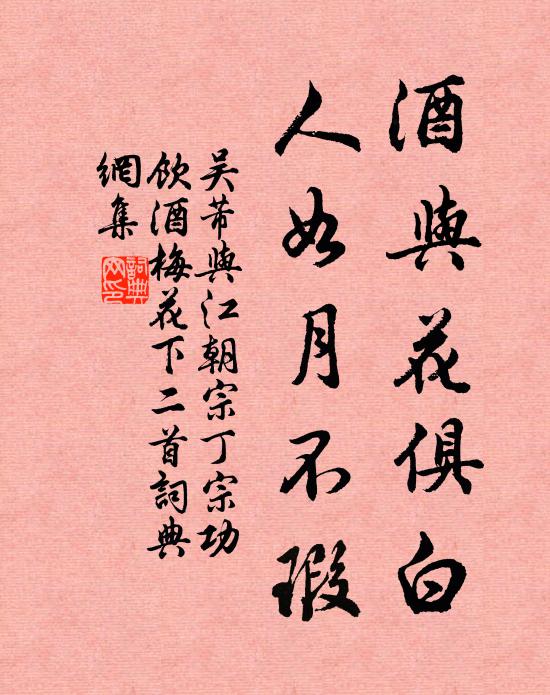 酒與花俱白
人如月不瑕
吴芾與江朝宗丁宗功
飲酒梅花下二首詞典
網集
詞典
网印